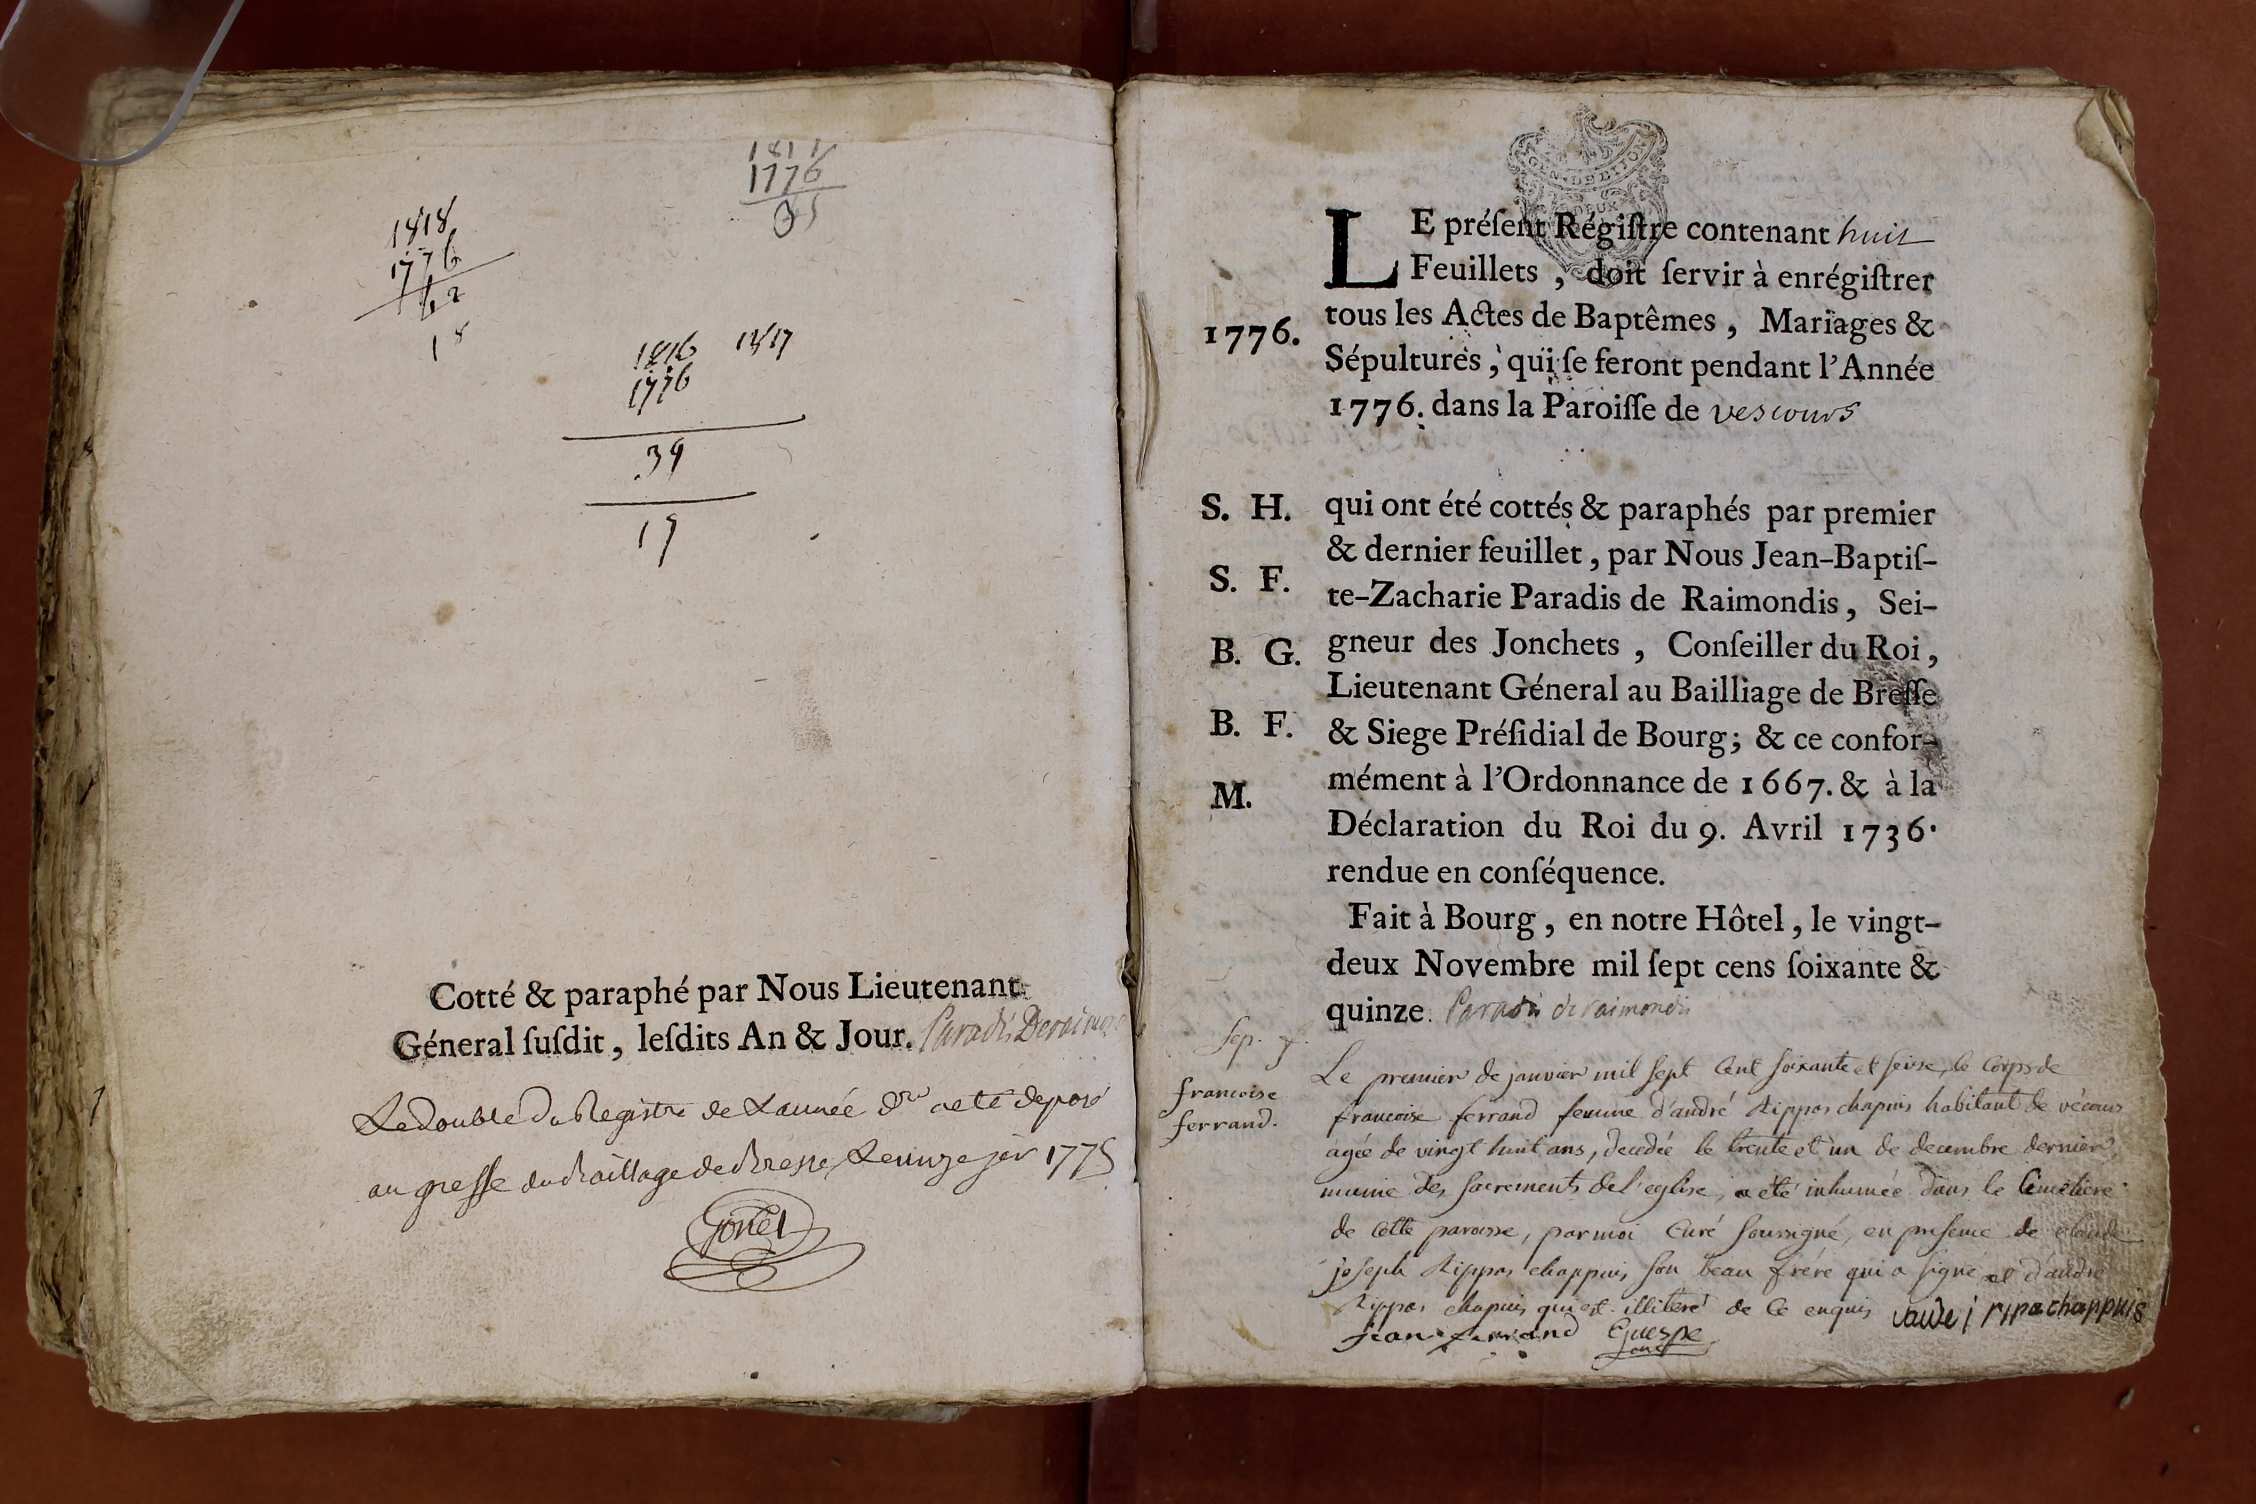 1811
1776
35
1818
1776
62
18
1816 1817
1776
39
19
Cotté & paraphé par Nous Lieutenant
Géneral ſuſdit, leſdits An & Jour. Paradis Deraimon
Le double du Registre de L'année dre a été deposé
au greffe du Bailliage de Bresse, Le onze jer 1775
Gonet
DIJON
DEUX
LE préſent Régiſtre contenant huit
Feuillets, doit ſervir à enrégiſtrer
tous les Actes de Baptêmes, Mariages &
1776.
Sépultures, qui ſe feront pendant l'Année
1776. dans la Paroiſſe de vescours
S. H. qui ont été cottés & paraphés par premier
& dernier feuillet, par Nous Jean-Baptiſ-
S. F. te-Zacharie Paradis de Raimondis, Sei-
B. G. gneur des Jonchets, Conſeiller du Roi,
Lieutenant Géneral au Bailliage de Breſſe
B. F. & Siege Préſidial de Bourg; & ce confor-
M. mément à l'Ordonnance de 1667. & à la
Déclaration du Roi du 9. Avril 1736.
rendue en conſéquence.
Fait à Bourg, en notre Hôtel, le vingt-
deux Novembre mil ſept cens ſoixante &
quinze. Paradis de raimondis
Sep. f.
francoise
ferrand.
Le premier de janvier mil sept cent soixante et seise, le corps de
francoise ferrand femme d'andré Rippas chapuis habitant de vécour
agée de vingt huit ans, decedée le trente et un de decembre dernier,
munie des sacrements de l'eglise, a été inhumée dans le cimetiere
de cette paroisse, par moi curé soussigné, en presence de claude
joseph Rippas chappuis son beau frére qui a signé et d'andré
Rippas chapuis qui est illiteré de ce enquis claude j ripachappuis
jean ferrand Guespe
curé